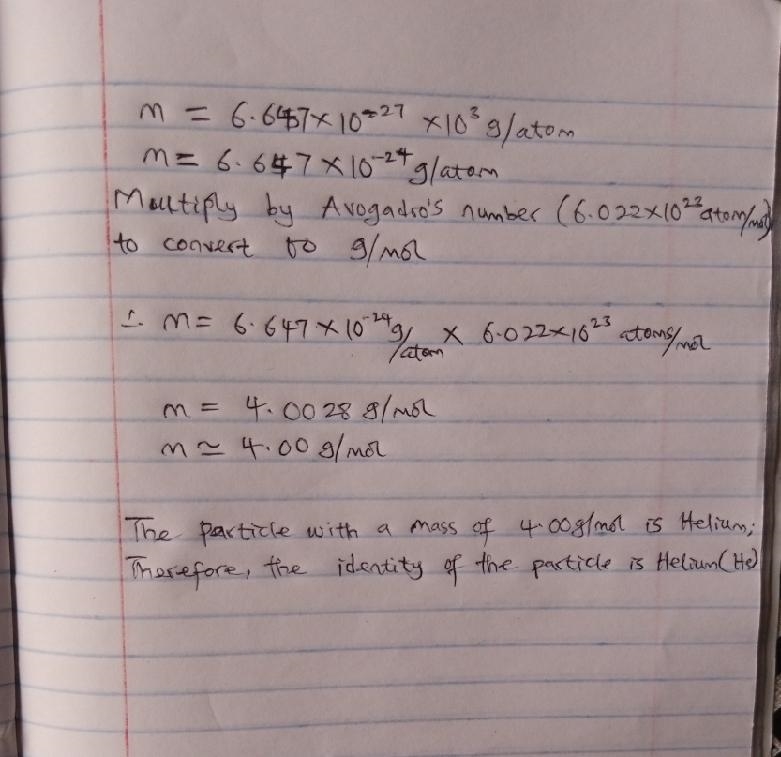 m = 6.647×10⁻²⁷ ×10³ g/atom
m = 6.647×10⁻²⁴ g/atom
Multiply by Avogadro's number (6.022×10²³ atom/mol)
to convert to g/mol
∴ m = 6.647×10⁻²⁴ g/atom × 6.022×10²³ atoms/mol
m = 4.0028 g/mol
m ≃ 4.00 g/mol
The particle with a mass of 4.00g/mol is Helium;
Therefore, the identity of the particle is Helium(He)